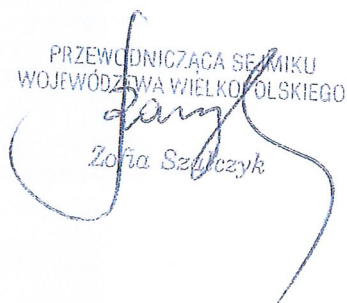 PRZEWODNICZĄCA SEJMIKU
WOJEWÓDZTWA WIELKOPOLSKIEGO
Zofia Szalczyk